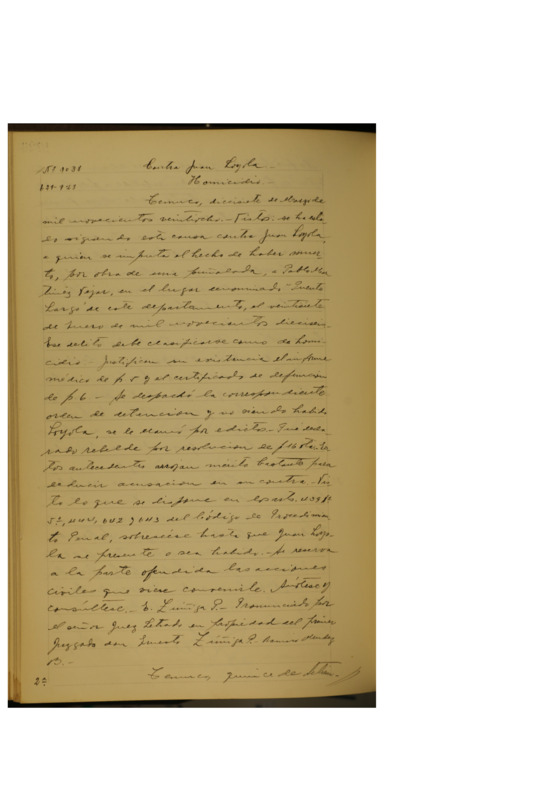 Contra Juan Loyola
Homicidio.
Temuco, diecisiete de Marzo de
mil novecientos veintiocho.- Vistos: se ha esta
do siguiendo esta causa contra Juan Loyola,
a quien se imputa el hecho de haber muer
to, por obra de una puñalada, a Pablo Mar
tinez Vejar, en el lugar denominado "Puente
Largo" de este departamento, el veintisiete
de Enero de mil novecientos
Ese delito debe clasificarse como de homi
cidio.- Justifican su existencia el informe
médico de f 5 y el certificado de defuncion
de f 6.- Se despachó la correspondiente
orden de detencion y no siendo habido
Loyola, se le llamó por edictos.- Fue decla
rado rebelde por resolucion de f 16
tos antecedentes arrojan mérito bastante para
deducir acusacion en su contra.- Vis
to lo que se dispone en los arts. 439 Nº
5º, 444, 642 y 643 del Código de Procedimien
to Penal, sobreséese hasta que Juan Loyo
la se presente o sea habido.- Se reserva
a la parte ofendida las acciones
civiles que viere convenirle. Anótese y
consúltese.- E. Zúñiga P.- Pronunciado por
el señor Juez Letrado en propiedad del primer
Juzgado don Ernesto Zúñiga P. Ramiro
2º Temuco, quince de